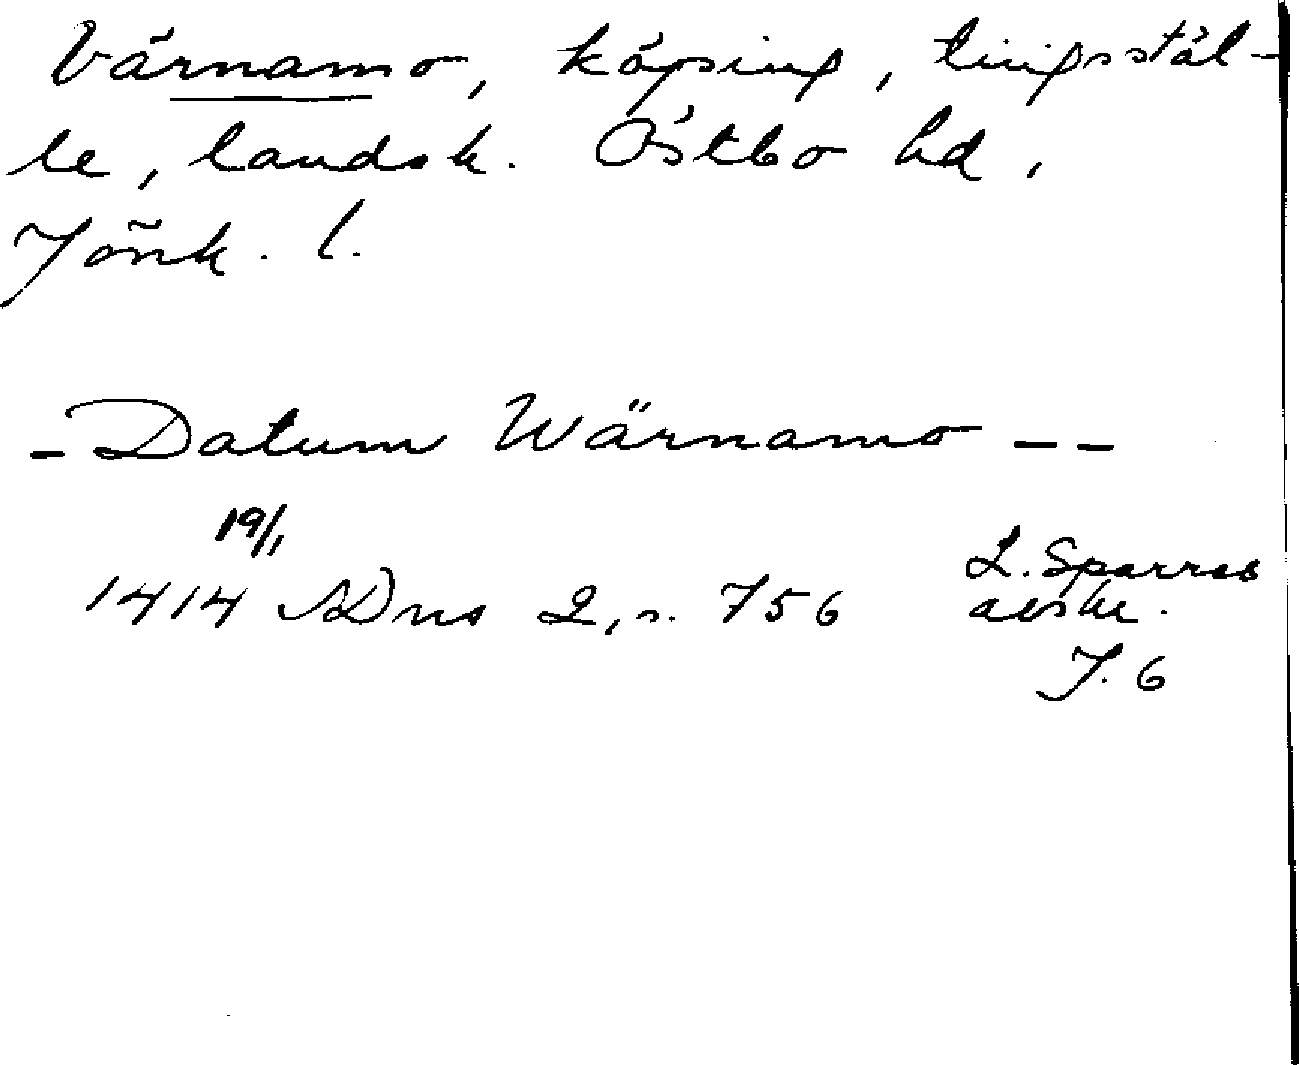 Värnamo, köping, tingsstäl-
le, landsk. Östbo hd,
Jönk. l.
- Datum Wärnamo - -
19/1
1414 SDns 2, s. 756
L. Sparres
avskr.
J. 6